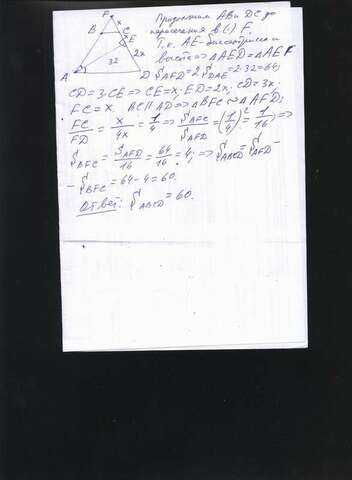 F
x
B
C
E
2x
32
A
D
Продолжим AB и DC до
пересечения в (·) F.
Т.к. AE - биссектриса и
высота => △AED = △AEF
S_AFD = 2·S_DAE = 2·32 = 64;
CD = 3·CE => CE = x; ED = 2x; CD = 3x;
FC = x. BC || AD => △BFC ~ △AFD;
FC/FD = x/4x = 1/4 => S_BFC/S_AFD = (1/4)² = 1/16; =>
S_BFC = S_AFD/16 = 64/16 = 4; => S_ABCD = S_AFD -
- S_BFC = 64 - 4 = 60.
Ответ: S_ABCD = 60.